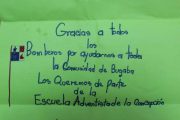 Gracias a todos
los
Bomberos por ayudarnos a toda
la Comunidad de Bugaba
Los Queremos de Parte
de la
Escuela Adventista de la Concepción